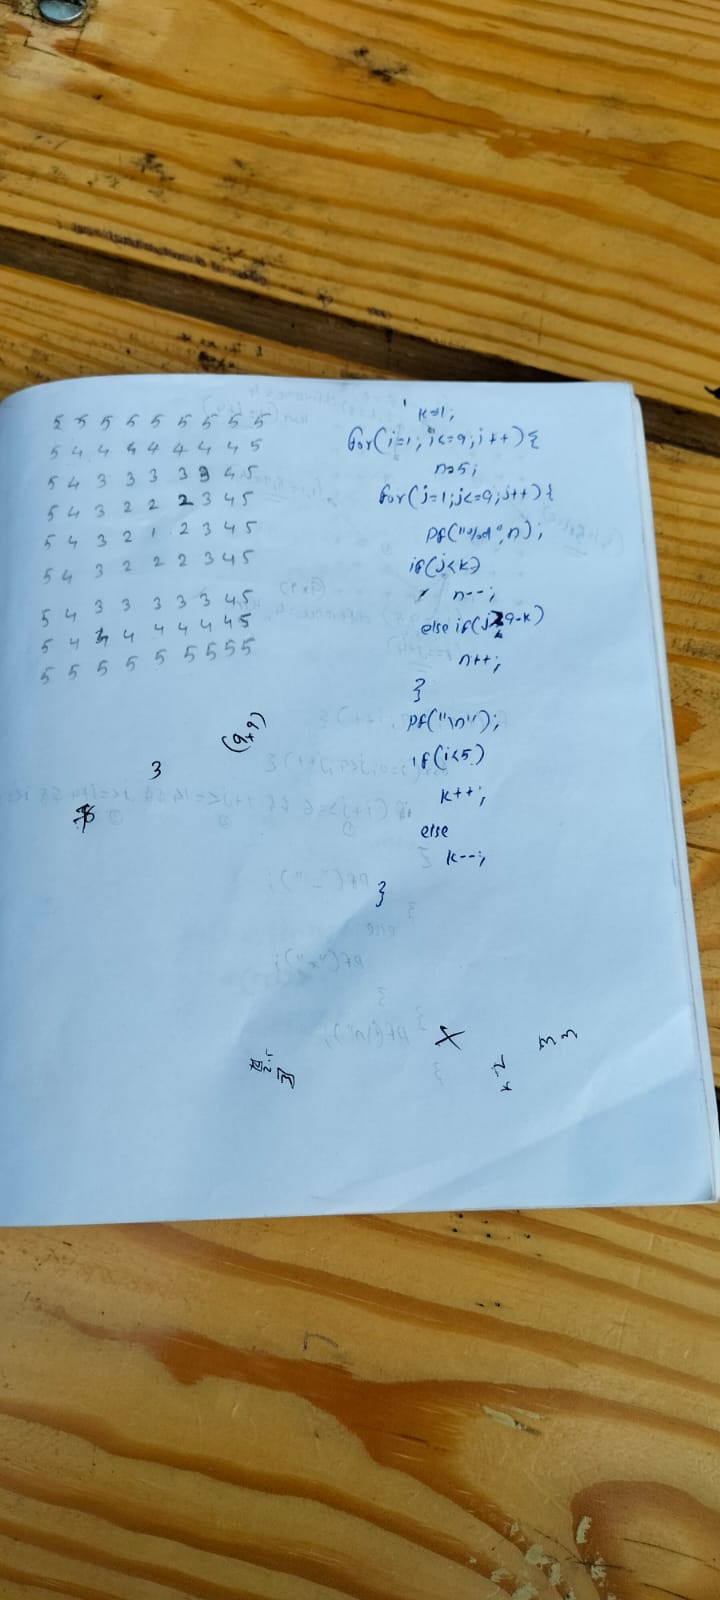 5 5 5 5 5 5 5 5 5
5 4 4 4 4 4 4 4 5
5 4 3 3 3 3 3 4 5
5 4 3 2 2 2 3 4 5
5 4 3 2 1 2 3 4 5
5 4 3 2 2 2 3 4 5
5 4 3 3 3 3 3 4 5
5 4 4 4 4 4 4 4 5
5 5 5 5 5 5 5 5 5
(9x9)
3
k=1;
for(i=1; i<=9; i++){
n=5;
for(j=1;j<=9;j++){
pf("%d",n);
if(j<k)
n--;
else if(j 9-k)
n++;
}
pf("\n");
if(i<5)
k++;
else
k--;
}